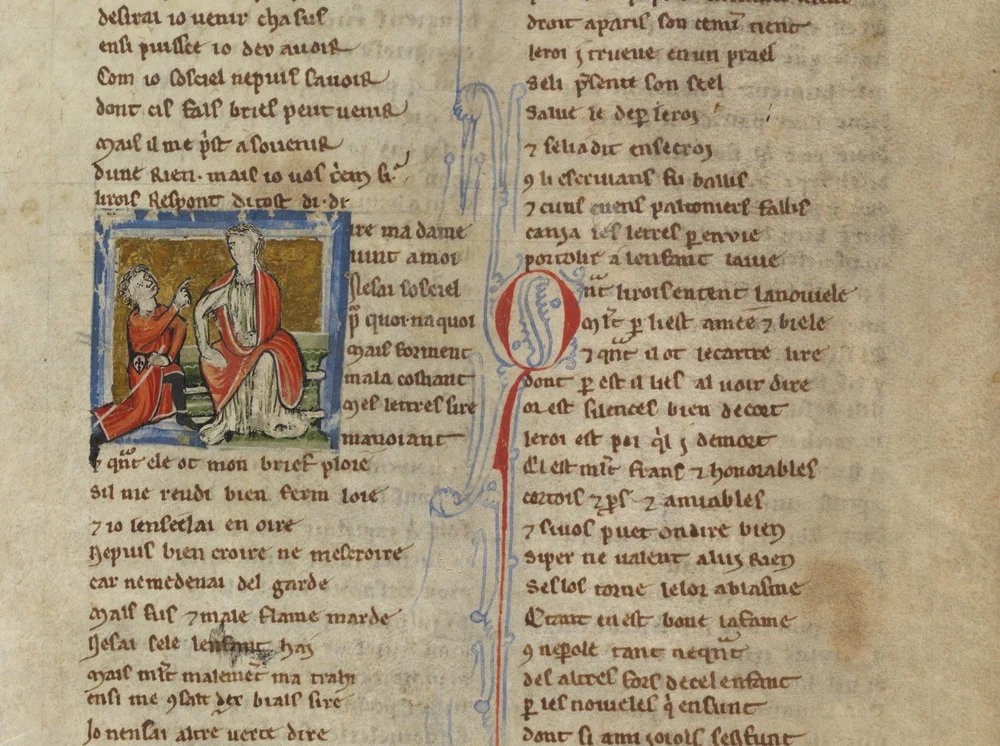 desirai io venir cha sus
ensi puissce io deu auoir
Com io sosciel nepuis sauoir
dont cis fals bries peut uenir
Mais il me pist a souenir
dune Rien. mais io uos criem si
lirois Respont di tost di. di
ire ma dame
uint a moi
Nesai sosciel
p quoi. na quoi
Mais forment
mala coitant
Mes lettres sire
manoiant
7 qnt ele ot mon brief ploie
Sil me rendi bien ferm loie
7 io lenseelai en oire
Nepuis bien croire ne mescroire
car ne me deuai del garde
Mais fus 7 male flame marde
Nesai sele lenfant hay
Mais mlt malemet ma trahi
ensi me 9sait dex bials sire
Jo nen sai altre uerte dire
droit a paris son cemin tient
leroi i trueue en un prael
Se li psente son seel
Salue le de p le roi
7 se li a dit en secroi
9 li escriuains fu baillis
7 cuns cuens paltoniers faillis
canja les letres p enuie
por tolir a lenfant la uie
Qnt li rois entent la nouiele
Mlt p li est amee 7 biele
7 qnt il ot le cartre lire
dont p est il lies al uoir dire
or est silences bien de cort
leroi est poi qi i demort
Cl est mlt frans 7 honorables
cortois 7 ps 7 amiables
7 si uos puet on dire bien
Si per ne ualent a lui Rien
Ses los torne le lor a blasme
Ctant en est boue la fame
9 ne pole tant ne qnt
des altres fors de cel enfant
p les nouieles qi en sunt
dont si ami goiols se font